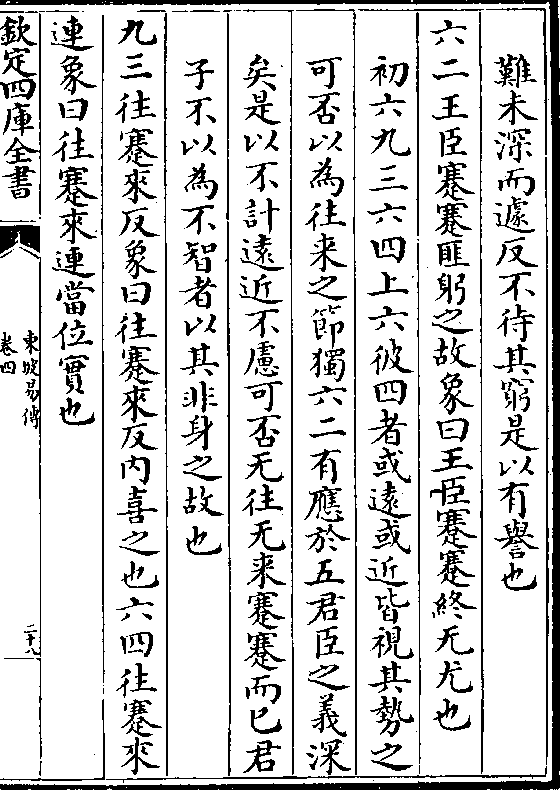 難未深而遽反不待其窮是以有譽也
六二王臣蹇蹇匪躬之故象曰王臣蹇蹇終无尤也
初六九三六四上六彼四者或遠或近皆視其勢之
可否以為往来之節獨六二有應於五君臣之義深
矣是以不計遠近不慮可否无往无来蹇蹇而已君
子不以為不智者以其非身之故也
九三往蹇來反象曰往蹇來反内喜之也六四往蹇來
連象曰往蹇來連當位實也
欽定四庫全書
東坡易傳
卷四
二十八